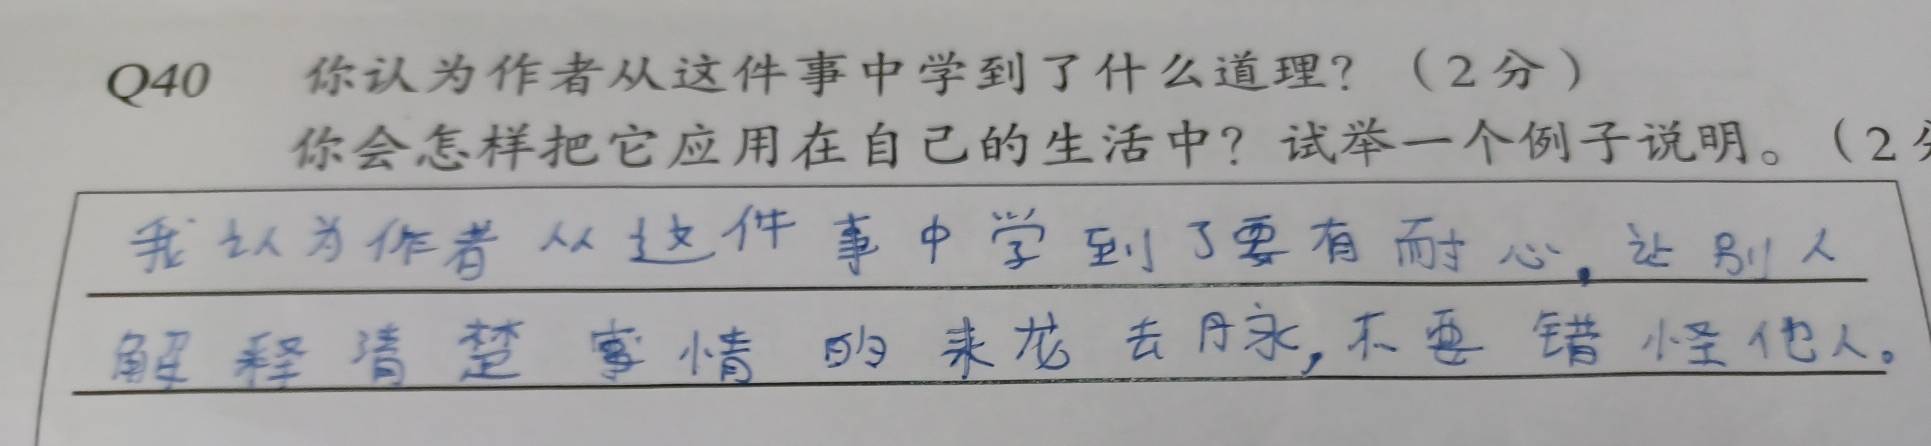 Q40 你认为作者从这件事中学到了什么道理？（2分）
你会怎样把它应用在自己的生活中？试举一个例子说明。（2分
我认为作者从这件事中学到了要有耐心，让别人
解释清楚事情的来龙去脉，不要错怪他人。